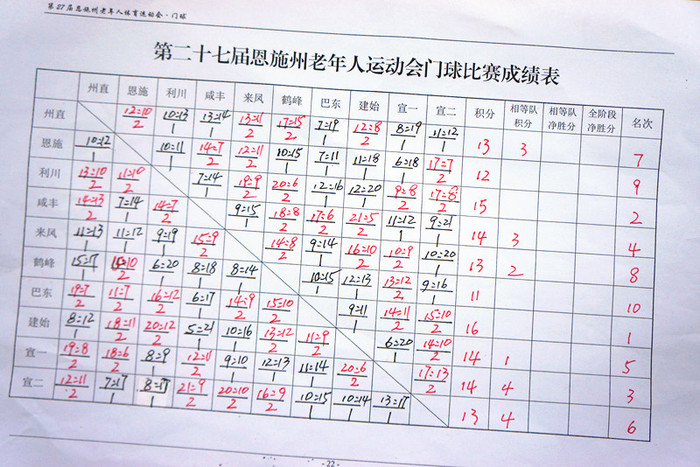 第27届恩施州老年人体育运动会·门球
第二十七届恩施州老年人运动会门球比赛成绩表
州直 恩施 利川 咸丰 来凤 鹤峰 巴东 建始 宣一 宣二 积分 相等队积分 相等队净胜分 全阶段净胜分 名次
州直 12=10 10=13 13=14 13=11 17=15 7=19 12=8 8=19 11=12 13 3 7
2 1 1 2 2 1 2 1 1
恩施 10=12 10=11 14=7 12=11 10=15 7=11 11=18 6=18 17=7 12 9
1 1 2 2 1 1 1 1 2
利川 13=10 11=10 7=14 19=9 20=6 12=16 12=20 9=8 17=8 15 2
2 2 1 2 2 1 1 2 2
咸丰 14=13 7=14 14=7 9=15 18=8 17=6 21=5 11=12 9=21 14 3 4
2 1 2 1 2 2 2 1 1
来凤 11=13 11=12 9=19 15=9 14=8 9=14 16=10 10=9 10=20 13 2 8
1 1 1 2 2 1 2 2 1
鹤峰 15=17 15=10 6=20 8=18 8=14 10=15 12=13 13=12 9=16 11 10
1 2 1 1 1 1 1 2 1
巴东 19=7 11=7 16=12 6=17 14=9 15=10 9=11 14=11 15=10 16 1
2 2 2 1 2 2 1 2 2
建始 8=12 18=11 20=12 5=21 10=16 13=12 11=9 6=20 14=10 14 1 5
1 2 2 1 1 2 2 1 2
宣一 19=8 18=6 8=9 12=11 9=10 12=13 11=14 20=6 17=13 14 4 3
2 2 1 2 1 1 1 2 2
宣二 12=11 7=17 8=17 21=9 20=10 16=9 10=15 10=14 13=17 13 4 6
2 1 1 2 2 2 1 1 1
·22·